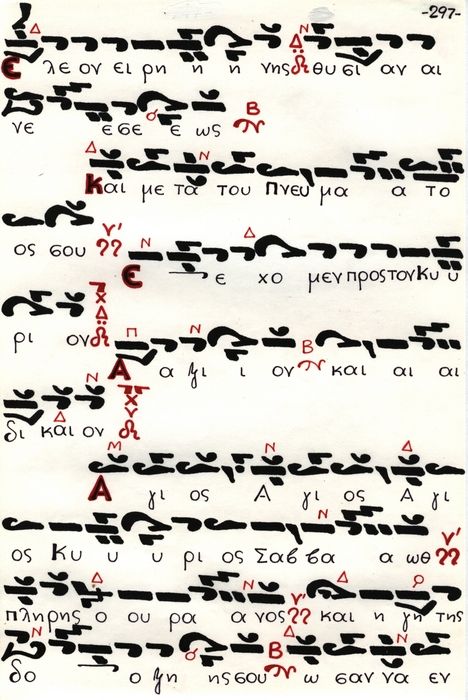 -297-
Ε λε ον ει ρη η η νης θυ σι αν αι
νε ε σε ε ως
Και με τα του Πνευ μα α το
ος σου Ε ε χο μεν προς τον Κυ υ
ρι ον Α α ξι ι ον και αι αι
δι και ον
Α γι ος Α γι ος Α γι
ος Κυ υ υ ρι ος Σαβ βα α ωθ
πλη ρης ο ου ρα α νος και η γη της
δο ο ξη ης σου ω σαν να εν